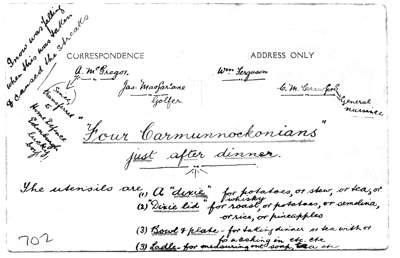 Snow was falling
when this was taken
& caused the streaks
CORRESPONDENCE
ADDRESS ONLY
A. McGregor.
Wm Ferguson
Jas. MacFarlane
Golfer
C. M. 
General
nuisance
Since
transferred
to
Home Defence
lucky
boy
"Four Carmunnockonians"
just after dinner.
The utensils are
(1) A "dixie" for potatoes, or stew, or tea, or
whisky
(2) "Dixie lid" for roast, or potatoes, or semolina,
or rice, or pineapples
(3) Bowl & plate - for taking dinner or tea with or
for washing in etc. etc
(3) Ladle - for measuring out soup, tea etc
702